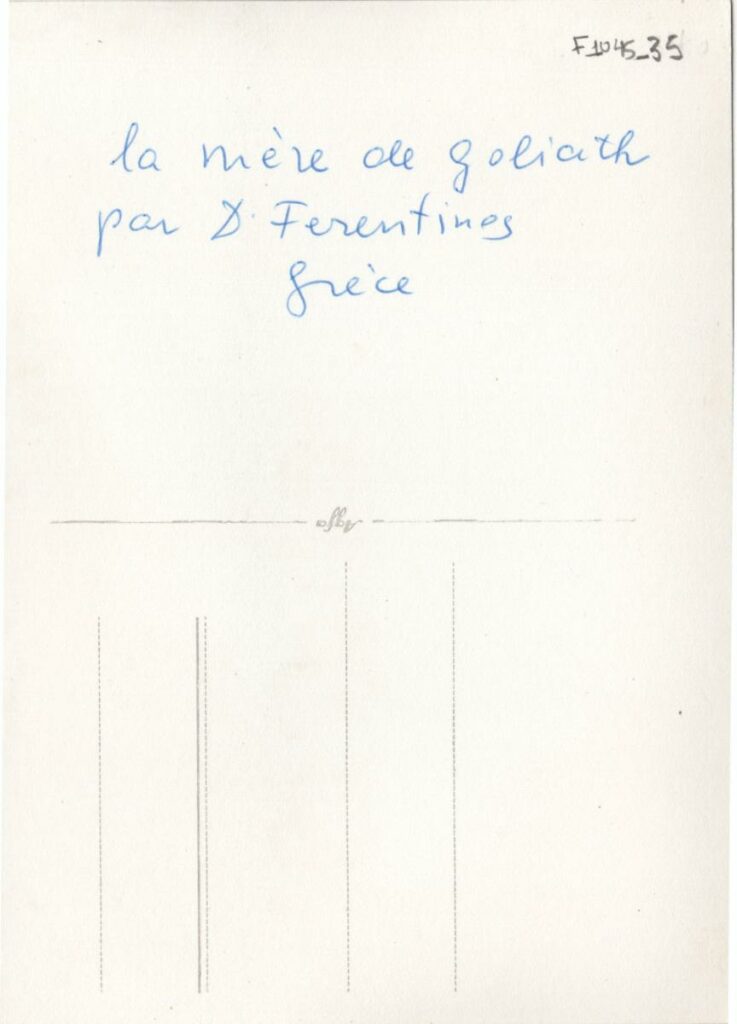 F1045_35
la mère de goliath
par D. Ferentinos
grèce
Agfa